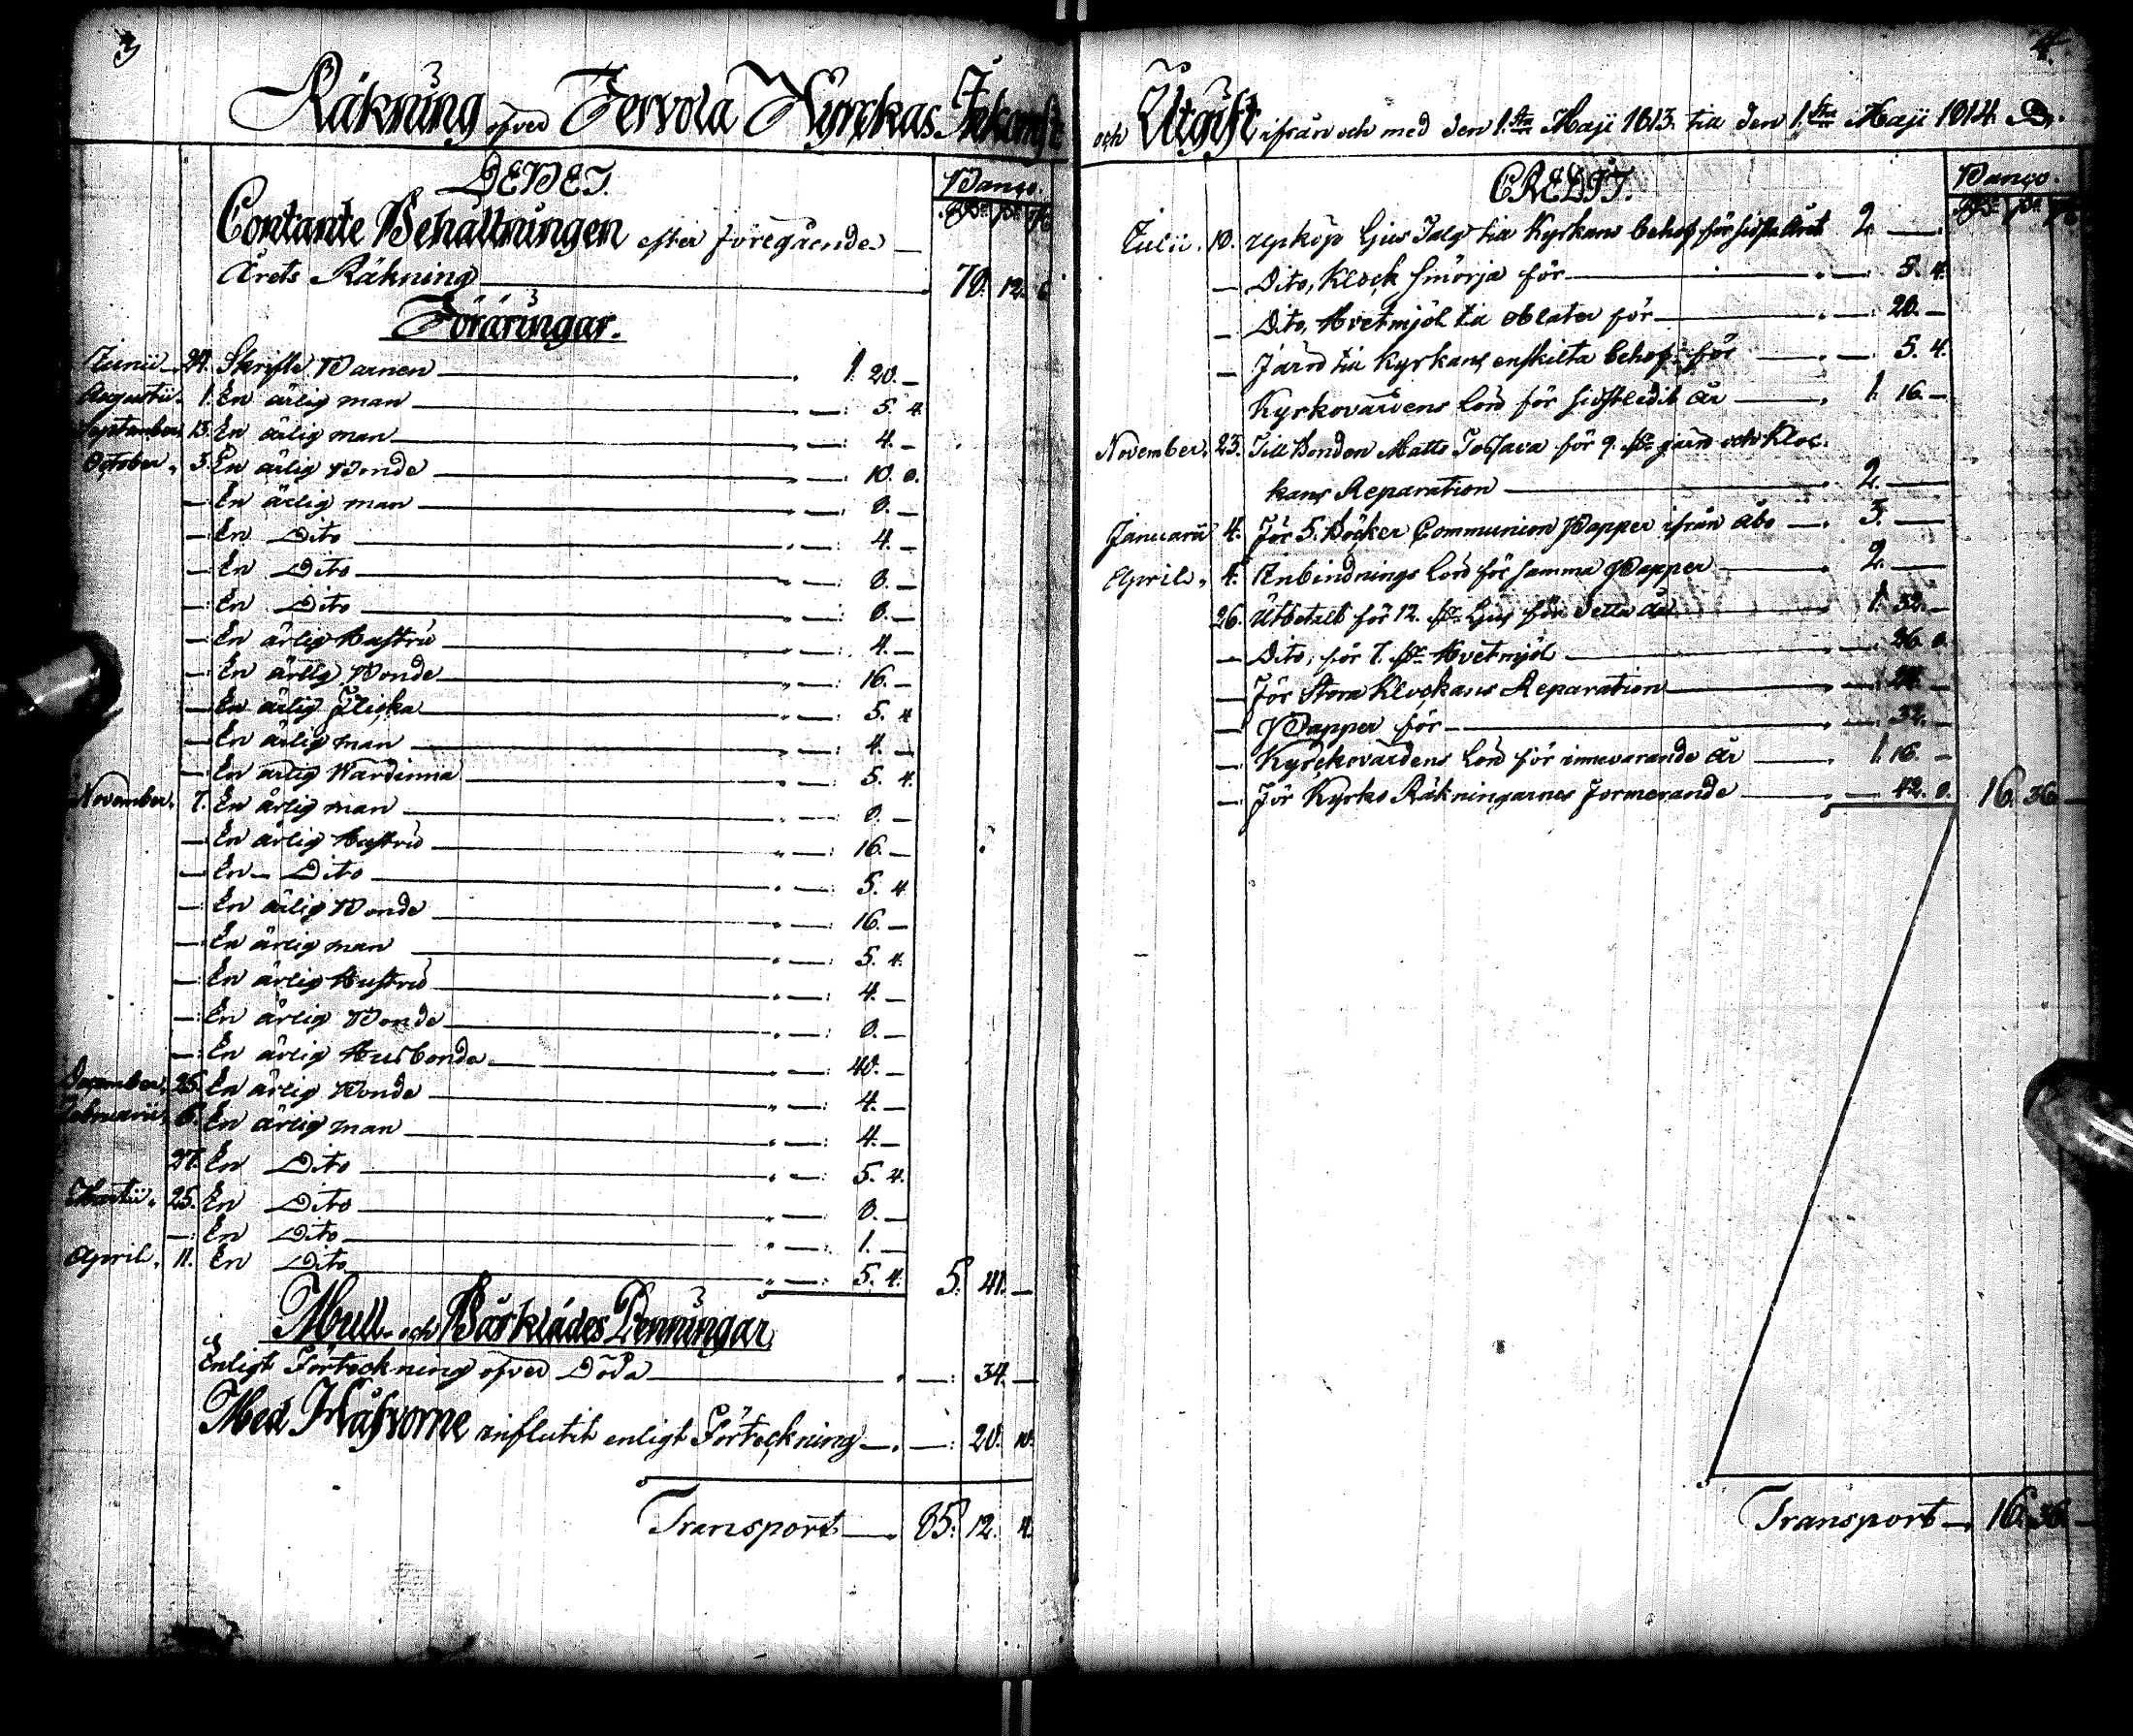 3
Räkning öfver Tervola Kyrckas Inkomst
DEBET.
Banco.
Rdr sk rs
Contante Behållningen efter föregående
Årets Räkning 78. 12. 6
Föräringar.
Junii 24. Skrifte Barnen 1. 20. —
Augustii. 1. En ärlig man — 5. 4.
September 13. En ärlig man — 4. —
October. 3. En ärlig Bonde — 10. 8.
— En ärlig man — 8. —
— En Dito — 4. —
— En Dito — 8. —
— En Dito — 8. —
— En ärlig Hustru — 4. —
— En ärlig Bonde — 16. —
— En ärlig Flicka — 5. 4
— En ärlig man — 4. —
— En ärlig Wärdinna — 5. 4.
November. 7. En ärlig man — 8. —
— En ärlig Hustru — 16. —
— En Dito — 5. 4
— En ärlig Bonde — 16. —
— En ärlig man — 5. 4.
— En ärlig Hustru — 4. —
— En ärlig Bonde — 8. —
— En ärlig Husbonde — 40. —
December. 25. En ärlig Bonde — 4. —
Februarii. 6. En ärlig man — 4. —
27. En Dito — 5. 4.
Martii. 25. En Dito — 8. —
— En Dito — 1. —
April. 11. En Dito — 5. 4. 5. 41. —
Mull- och Bårklädes Penningar
Enligt Förteckning öfver Döda — 34. —
Med Håfvorne influtit enligt Förteckning — 20. 10.
Transport 85. 12. 4.
4.
och Utgift ifrån och med den 1.sta Maji 1813. till den 1.sta Maji 1814.
CREDIT.
Banco.
Rdr sk rs
Julii. 18. upköp Ljus Talg till Kyrkans behof för sidsta Året 2. —
— Dito, Klock smörja för — 5. 4.
— Dito, Hvetmjöl till oblater för — 20. —
— Järn till Kyrkans enskilta behof för — 5. 4.
Kyrkovärdens lön för sidstledit år 1. 16. —
November. 23. Till Bonden Matts för 9. järn och Kloc-
kans Reparation 2. —
Januarii 4. För 5. Böcker Communion Papper ifrån Åbo 3. —
April. 4. Inbindnings lön för samma Papper 2. —
26. Utbetalt för 12. Ljus för detta år 1. 32. —
— Dito, för 7. Hvetmjöl — 26. 8.
— För Stora Klockans Reparation — 24. —
— Papper för — 32. —
— Kyrckovärdens lön för innevarande år 1. 16. —
— För Kyrko Räkningarnes formerande — 42. 8. 16. 36. —
Transport 16. 36. —